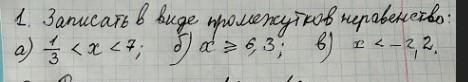 1. Записать в виде промежутков неравенство:
а) 1/3 < x < 7; б) x ⩾ 6,3; в) x < -2,2.